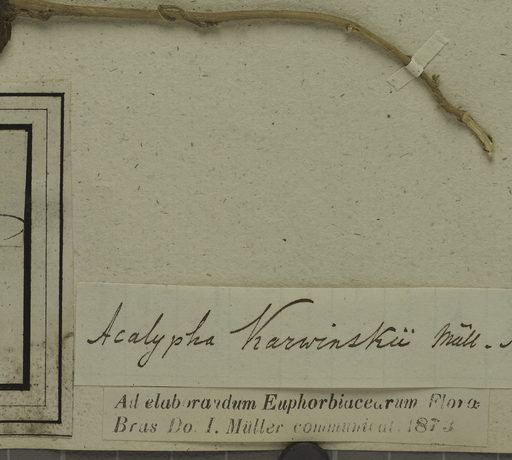 Acalypha Karwinskii Müll-
Ad elaborandum Euphorbiacearum Floræ
Bras Do. I. Müller communicat. 1873